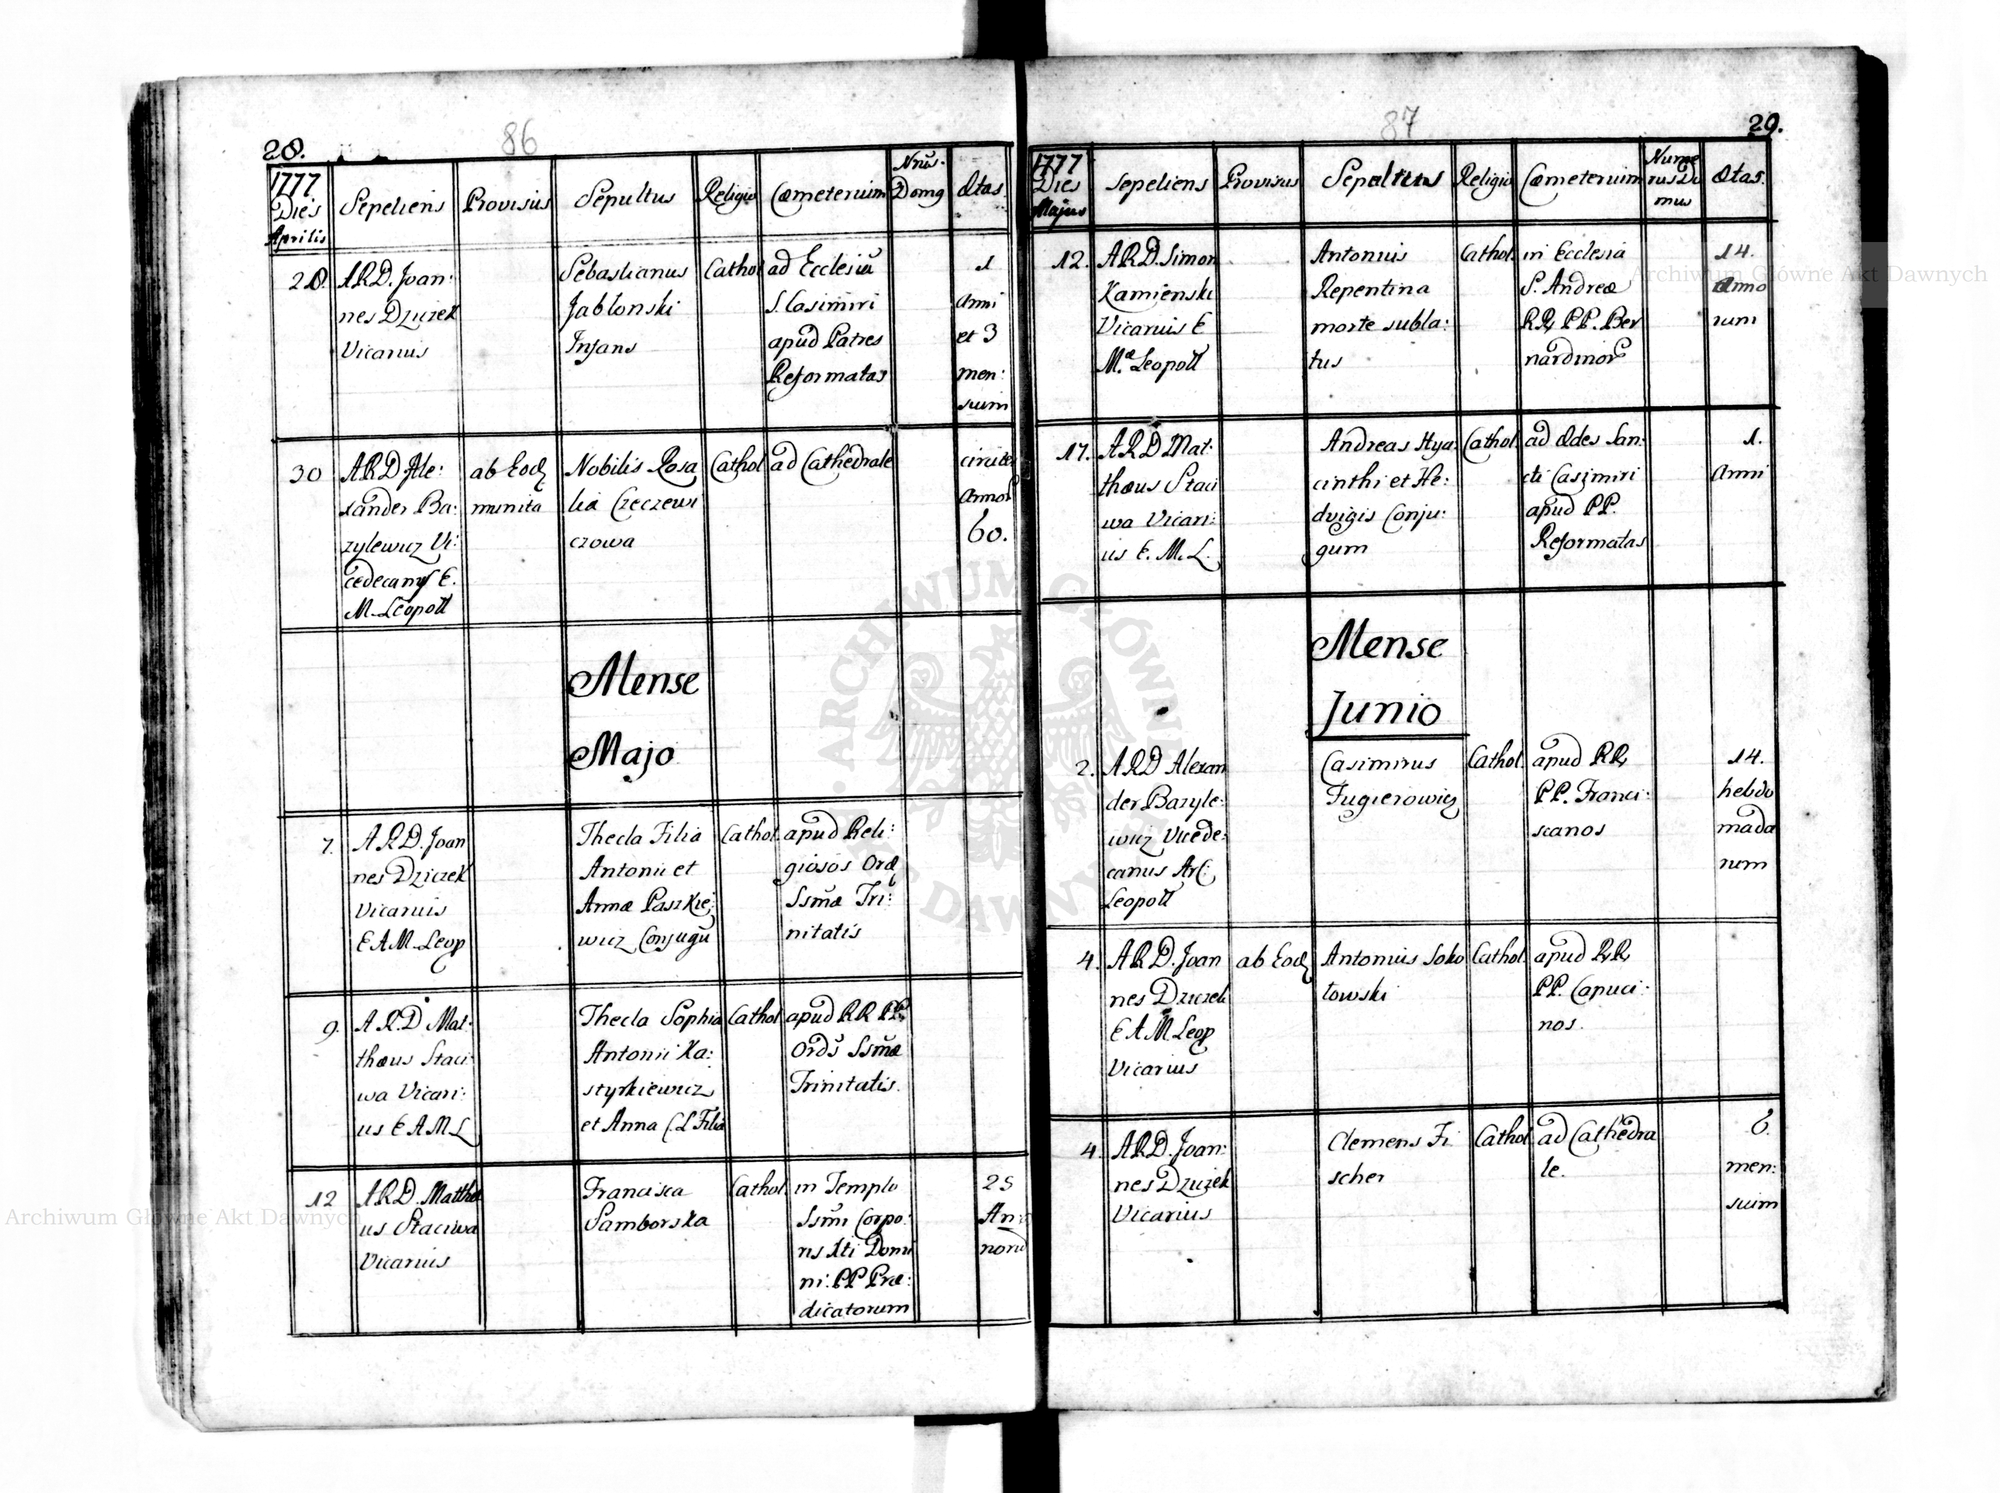 28.
86
1777
Dies
Aprilis
Sepeliens
Provisus
Sepultus
Religio
Cœmeterium
Nrus
Domq
Ætas
28.
ARD. Joan:
nes Dziczek
Vicarius
Sebastianus
Jabłonski
Infans
Cathol
ad Ecclesiã
S. Casimiri
apud Patres
Reformatas
1
Anni
et 3
men:
sium
30
ARD. Ale:
xander Ba:
zylewicz Vi:
cedecanus E.
M. Leopoll
ab Eod
munita
Nobilis Rosa
lia Czeczewi
czowa
Cathol
ad Cathedrale
circiter
Annor
60.
Mense
Majo
7.
ARD. Joan
nes Dziczek
Vicarius
E A M. Leop
Thecla Filia
Antonii et
Annæ Paszkie
wicz Conjugũ
Cathol.
apud Reli:
giosos Ord
Ssmæ Tri:
nitatis
9.
A R.D Mat:
thæus Staci
wa Vicari:
us E A M L
Thecla Sophia
Antonii Ka:
styrkiewicz
et Anna C.L Filia
Cathol
apud RR PP.
Ords Ssmæ
Trinitatis.
12
ARD. Matthæ
us Staciwa
Vicarius
Francisca
Samborska
Cathol.
in Templo
Ssmi Corpo:
ris Xti Domi
ni. PP Præ:
dicatorum
25
An
norũ
87
29.
1777
Dies
Majus
Sepeliens
Provisus
Sepultus
Religio
Cœmeterium
Nume
rus Do
mus
Ætas.
12.
ARD. Simon
Kamienski
Vicarius E
M. Leopoll
Antonius
Repentina
morte subla:
tus
Cathol.
in Ecclesia
S. Andreæ
RR. PP. Ber
nardinor
14.
Anno
rum
17.
ARD Mat:
thæus Staci
wa Vicari:
us E. M. L.
Andreas Hya:
cinthi et He:
dvigis Conju:
gum
Cathol.
ad Ædes San:
cti Casimiri
apud PP.
Reformatas
1.
Anni
Mense
Junio
2.
ARD Alexan
der Bazyle:
wicz Vicede:
canus Ar:
Leopoll
Casimirus
Fugierowicz
Cathol.
apud RR
PP. Franci:
scanos
14.
hebdo
mada
rum
4.
ARD. Joan
nes Dziczek
E A M Leop
Vicarius
ab Eod
Antonius Soko
łowski
Cathol.
apud RR
PP. Capuci:
nos.
4.
ARD. Joan:
nes Dziczek
Vicarius
Clemens Fi
scher
Cathol
ad Cathedra
le.
6.
men:
sium
Archiwum Główne Akt Dawnych
Archiwum Główne Akt Dawnych
ARCHIWUM GŁÓWNE AKT DAWNYCH